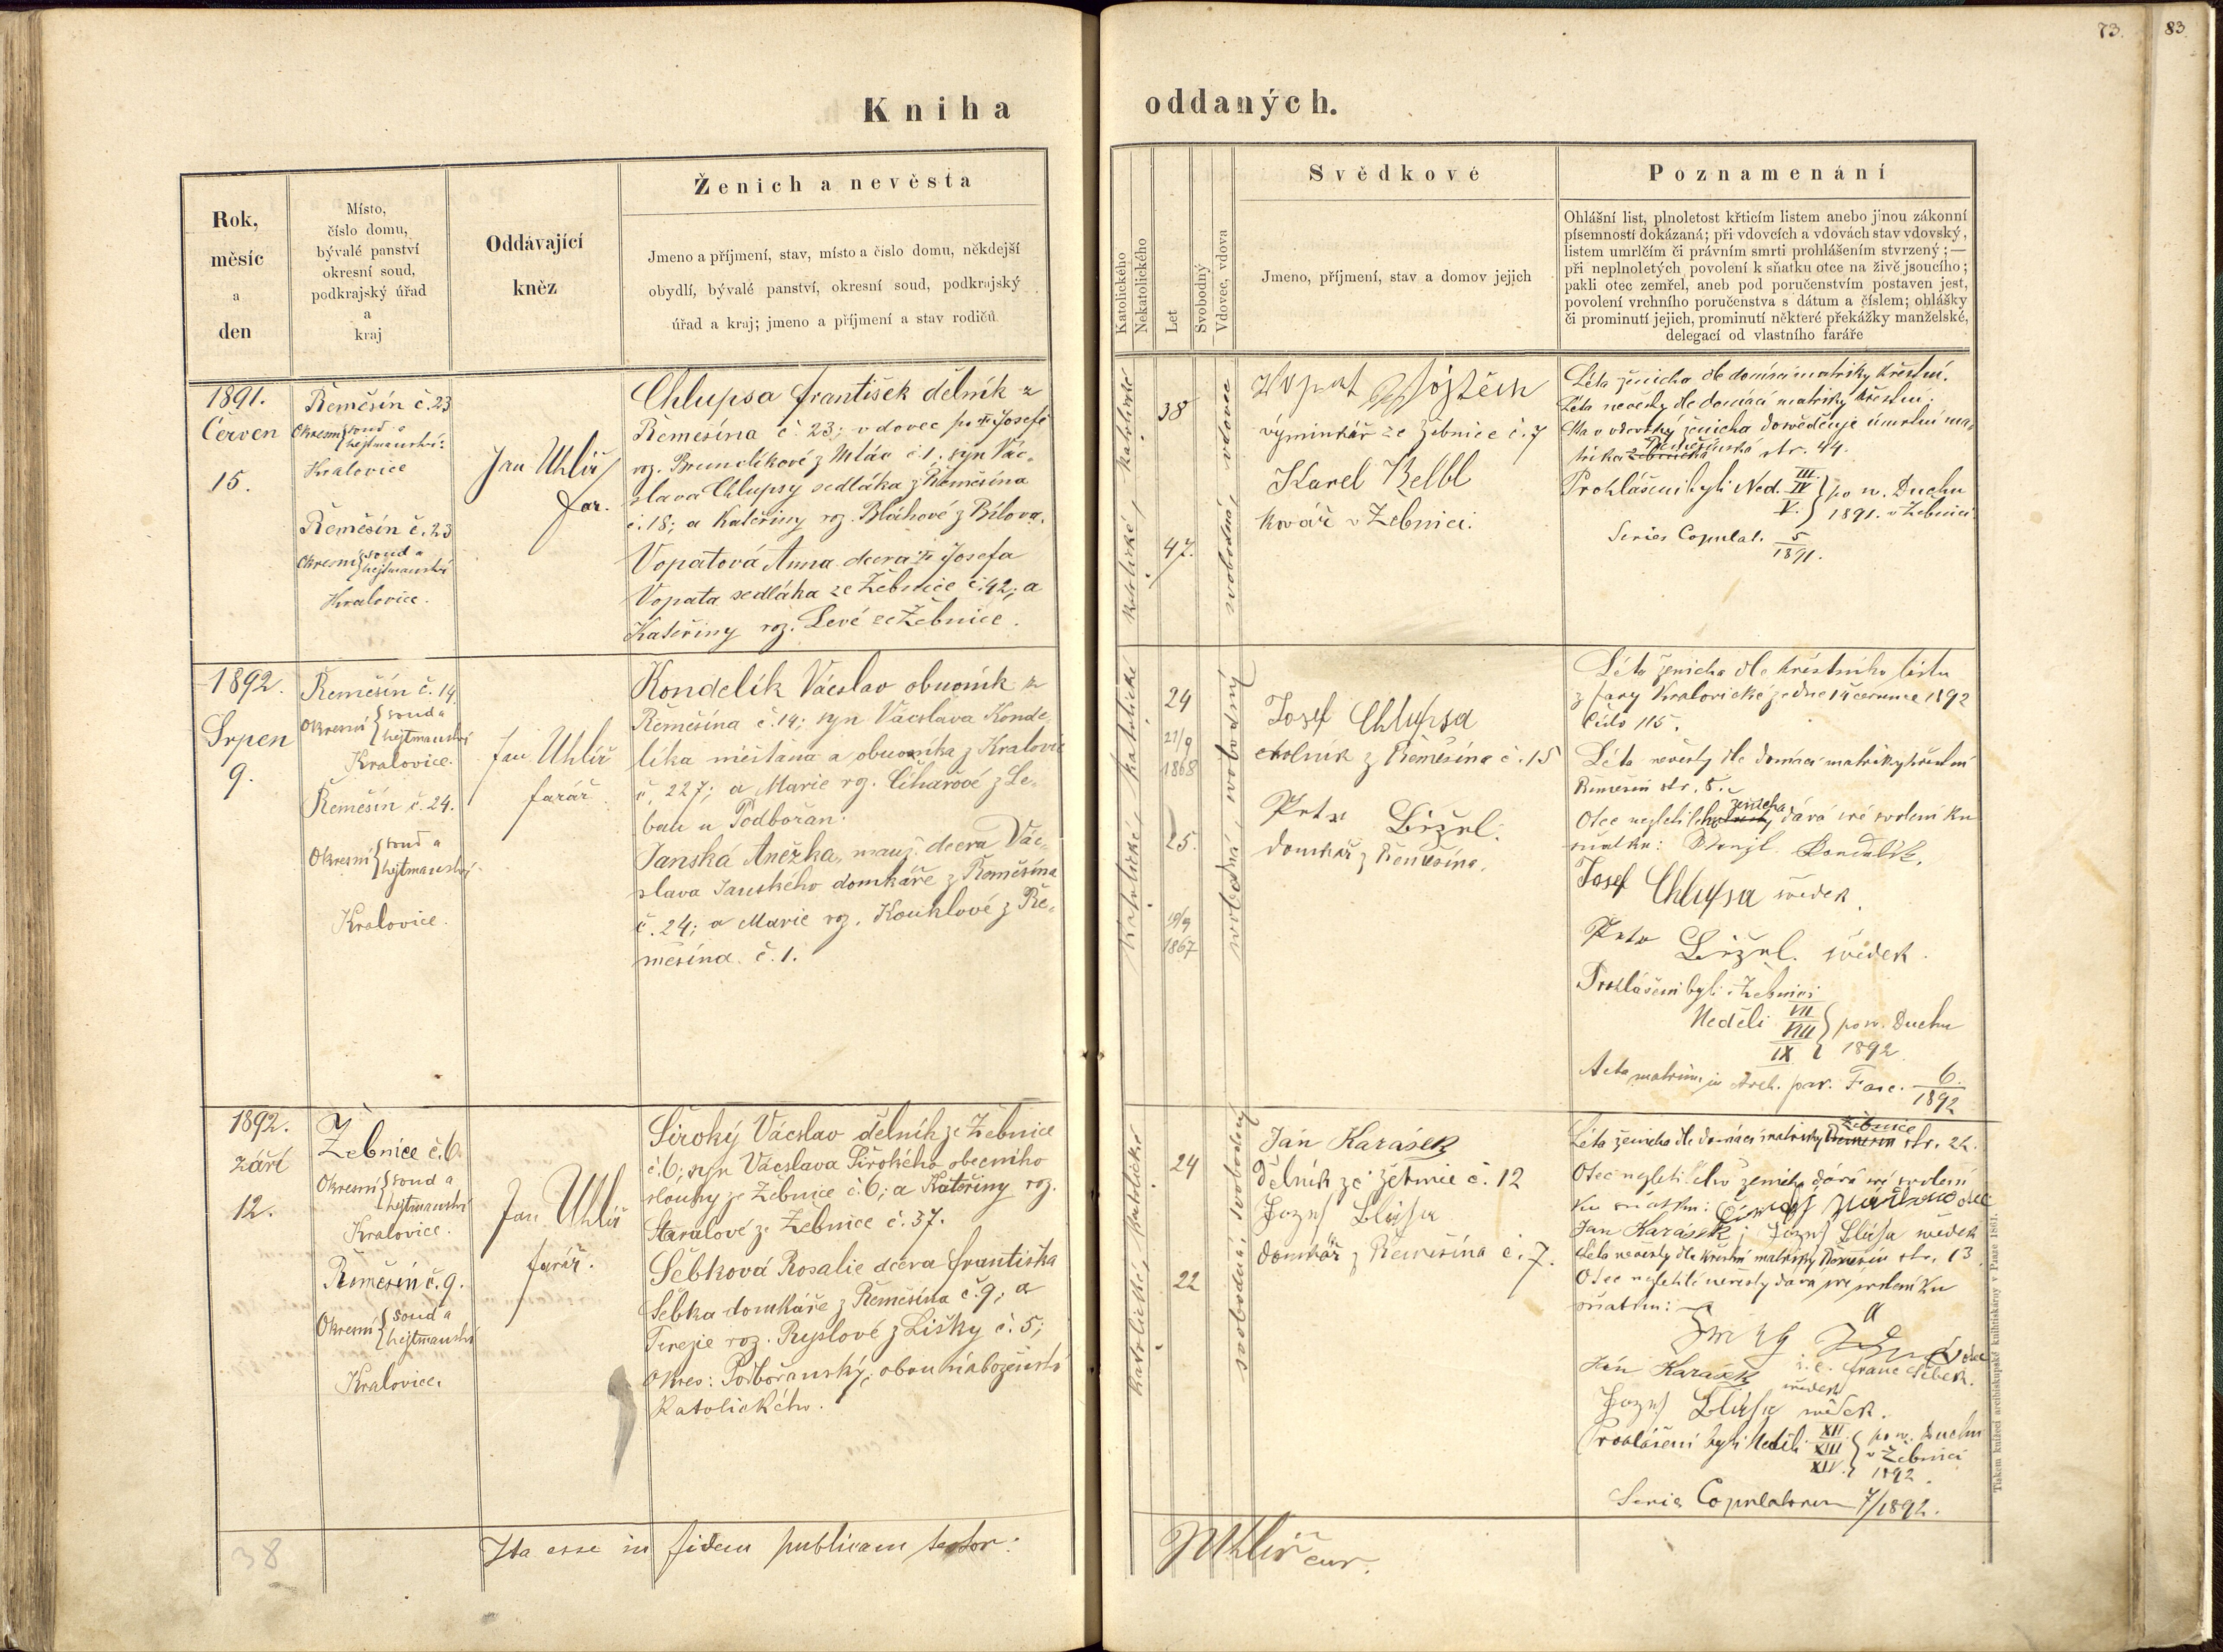 73.
83
Kniha
oddaných.
Rok,
měsíc
a
den
Místo,
číslo domu,
bývalé panství
okresní soud,
podkrajský úřad
a
kraj
Oddávající
kněz
Ženich a nevěsta
Jmeno a příjmení, stav, místo a číslo domu, někdejší
obydlí, bývalé panství, okresní soud, podkrajský
úřad a kraj; jmeno a příjmení a stav rodičů
Katolického
Nekatolického
Let
Svobodný
Vdovec, vdova
Svědkové
Jmeno, příjmení, stav a domov jejich
Poznamenání
Ohlášní list, plnoletost křticím listem anebo jinou zákonní
písemností dokázaná; při vdovcích a vdovách stav vdovský,
listem umrlčím či právním smrti prohlášením stvrzený; —
při neplnoletých povolení k sňatku otce na živě jsoucího;
pakli otec zemřel, aneb pod poručenstvím postaven jest,
povolení vrchního poručenstva s dátum a číslem; ohlášky
či prominutí jejich, prominutí některé překážky manželské,
delegací od vlastního faráře
1891.
Červen
15.
Řemešín č. 23
Okresní soud a
hejtmanství:
Kralovice
Řemešín č. 23
Okresní soud a
hejtmanství
Kralovice.
Jan Uhlíř
far.
Chlupsa František dělník z
Řemešína č. 23; vdovec po Josefě
roz. Brumclíkové z Mlác č. 1. syn Vác-
slava Chlupsy sedláka z Řemešína
č. 18; a Kateřiny roz. Bláhové z Bílova.
Vopatová Anna dcera Josefa
Vopata sedláka ze Žebnice č. 42; a
Kateřiny roz. Levé ze Žebnice.
katolické, katolické
38
47.
svobodná, vdovec
Vopat Vojtěch
výminkář ze Žebnice č. 7
Karel Kelbl
kovář v Žebnici.
Léta ženicha dle domácí matriky křestní.
Léta nevěsty dle domácí matriky křestní.
Stav vdovský ženicha dosvědčuje úmrtní ma-
trika Řemešínská str. 44.
Prohlášeni byli Ned. III. IV V. po sv. Duchu
1891. v Žebnici
Series Copulat. 5/1891.
1892.
Srpen
9.
Řemešín č. 14
Okresní soud a
hejtmanství
Kralovice.
Řemešín č. 24.
Okresní soud a
hejtmanství
Kralovice.
Jan Uhlíř
farář
Kondelík Václav obuvník z
Řemešína č. 14; syn Vácslava Konde-
líka měšťana a obuvníka z Kralovic
č. 227; a Marie roz. Cihařové z Le-
ban u Podbořan.
Janská Anežka, manž. dcera Vác-
slava Janského domkáře z Řemešína
č. 24; a Marie roz. Kouklové z Ře-
mešína č. 1.
Katolické, katolické
24
21/9
1868
25.
19/9
1867
svobodná, svobodný
Josef Chlupsa
rolník z Řemešína č. 15
Petr Ližrl.
domkář z Řemešína.
Léta ženicha dle křestního listu
z fary Kralovické ze dne 14 července 1892
číslo 115.
Léta nevěsty dle domácí matriky křestní
Řemešín str. 5.
Otec nezletilého ženicha dává své svolení ku
sňatku: Kondelík.
Josef Chlupsa svědek.
Petr Ližrl. svědek.
Prohlášeni byli v Žebnici
Neděli VII VIII IX po sv. Duchu
1892
Acta matrim. in Arch. par. Fasc. 6./1892
1892.
září
12.
Žebnice č. 6.
Okresní soud a
hejtmanství
Kralovice.
Řemešín č. 9.
Okresní soud a
hejtmanství
Kralovice.
Jan Uhlíř
farář.
Široký Václav dělník ze Žebnice
č. 6; syn Vácslava Širokého obecního
slouhy ze Žebnice č. 6; a Kateřiny roz.
Staralové ze Žebnice č. 37.
Šebková Rosalie dcera Františka
Šebka domkáře z Řemešína č. 9; a
Terezie roz. Ryslové z Lišky č. 5;
okres: Podbořanský; obou náboženství
katolického.
Katolické, katolické
24
22
svobodná, svobodný
Jan Karásek
dělník ze Žebnice č. 12
Jozef Blúsa
domkář z Řemešína č. 7.
Léta ženicha dle domácí matriky Žebnice str. 22.
Otec nezletilého ženicha dává své svolení
ku sňatku: otec
Jan Karásek; Jozef Blúsa svědek
Léta nevěsty dle křestní matriky Řemešín str. 13
Otec nezletilé nevěsty dává své svolení ku
sňatku:
otec
i. e. Franc Šebek.
Ján Karásek svědek
Jozef Blúsa svědek.
Prohlášeni byli Neděli XII XIII XIV. po sv. Duchu
v Žebnici
1892.
Series Copulatorum 7/1892.
Ita esse in fidem publicam testor:
JUhlíř cur.
38
Tiskem knížecí arcibiskupské knihtiskárny v Praze 1861.